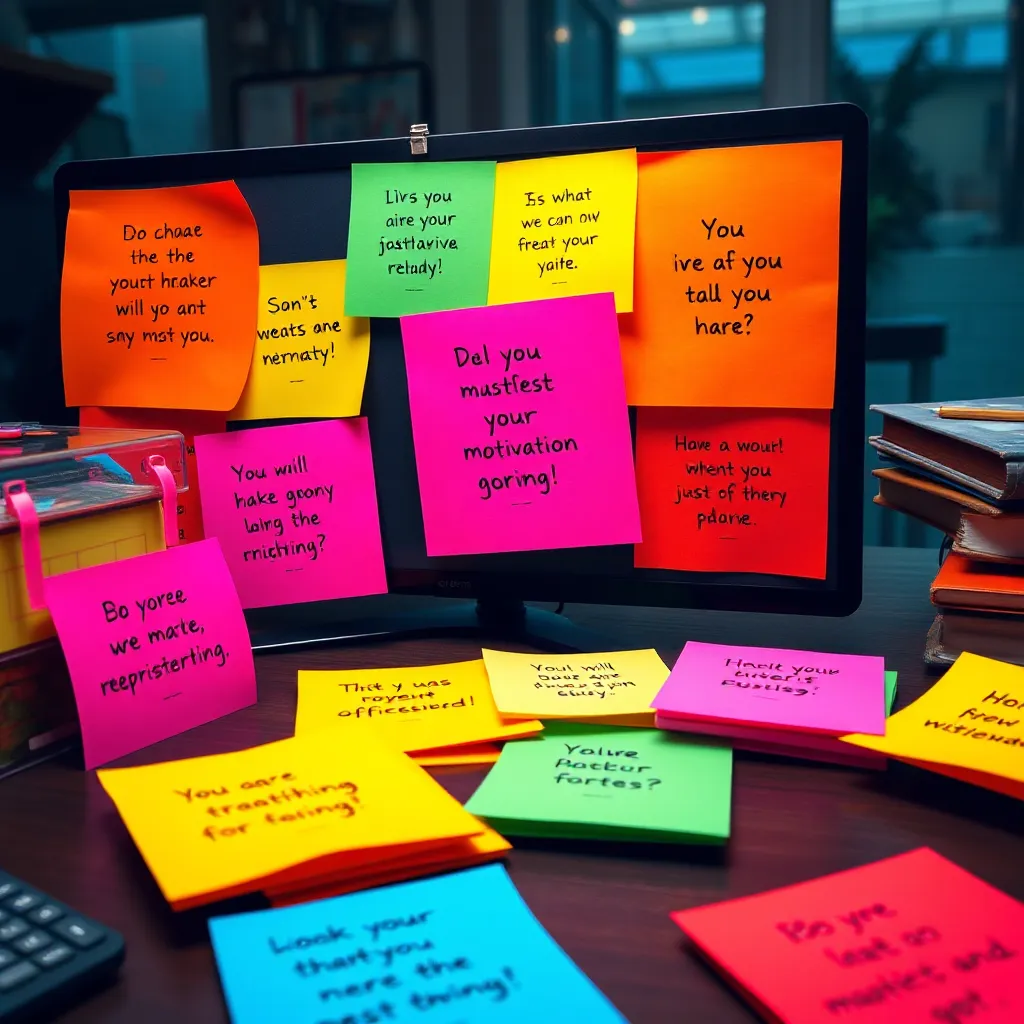 Do chaae
the the
yourt hraker
will yo ant
sny mst you.
San"t
weats ane
nernaty!
Livs you
aire your
jastlavive
retady!
Is what
we can ow
freat your
yaite.
You
ive af you
tall you
hare?
Del you
mustfest
your
motivation
goring!
Have a wour!
whent you
just of thery
pdarve.
You will
hake goony
laing the
rniçhting?
Bo yoree
we mate,
reepristerting.
That y uas
officessful!
You! will
Yalire
Backur
fartes?
You are
tratthing
for faling!
Look your
that you
nere the
nest thving!
Bo yre
leat as
and
got.